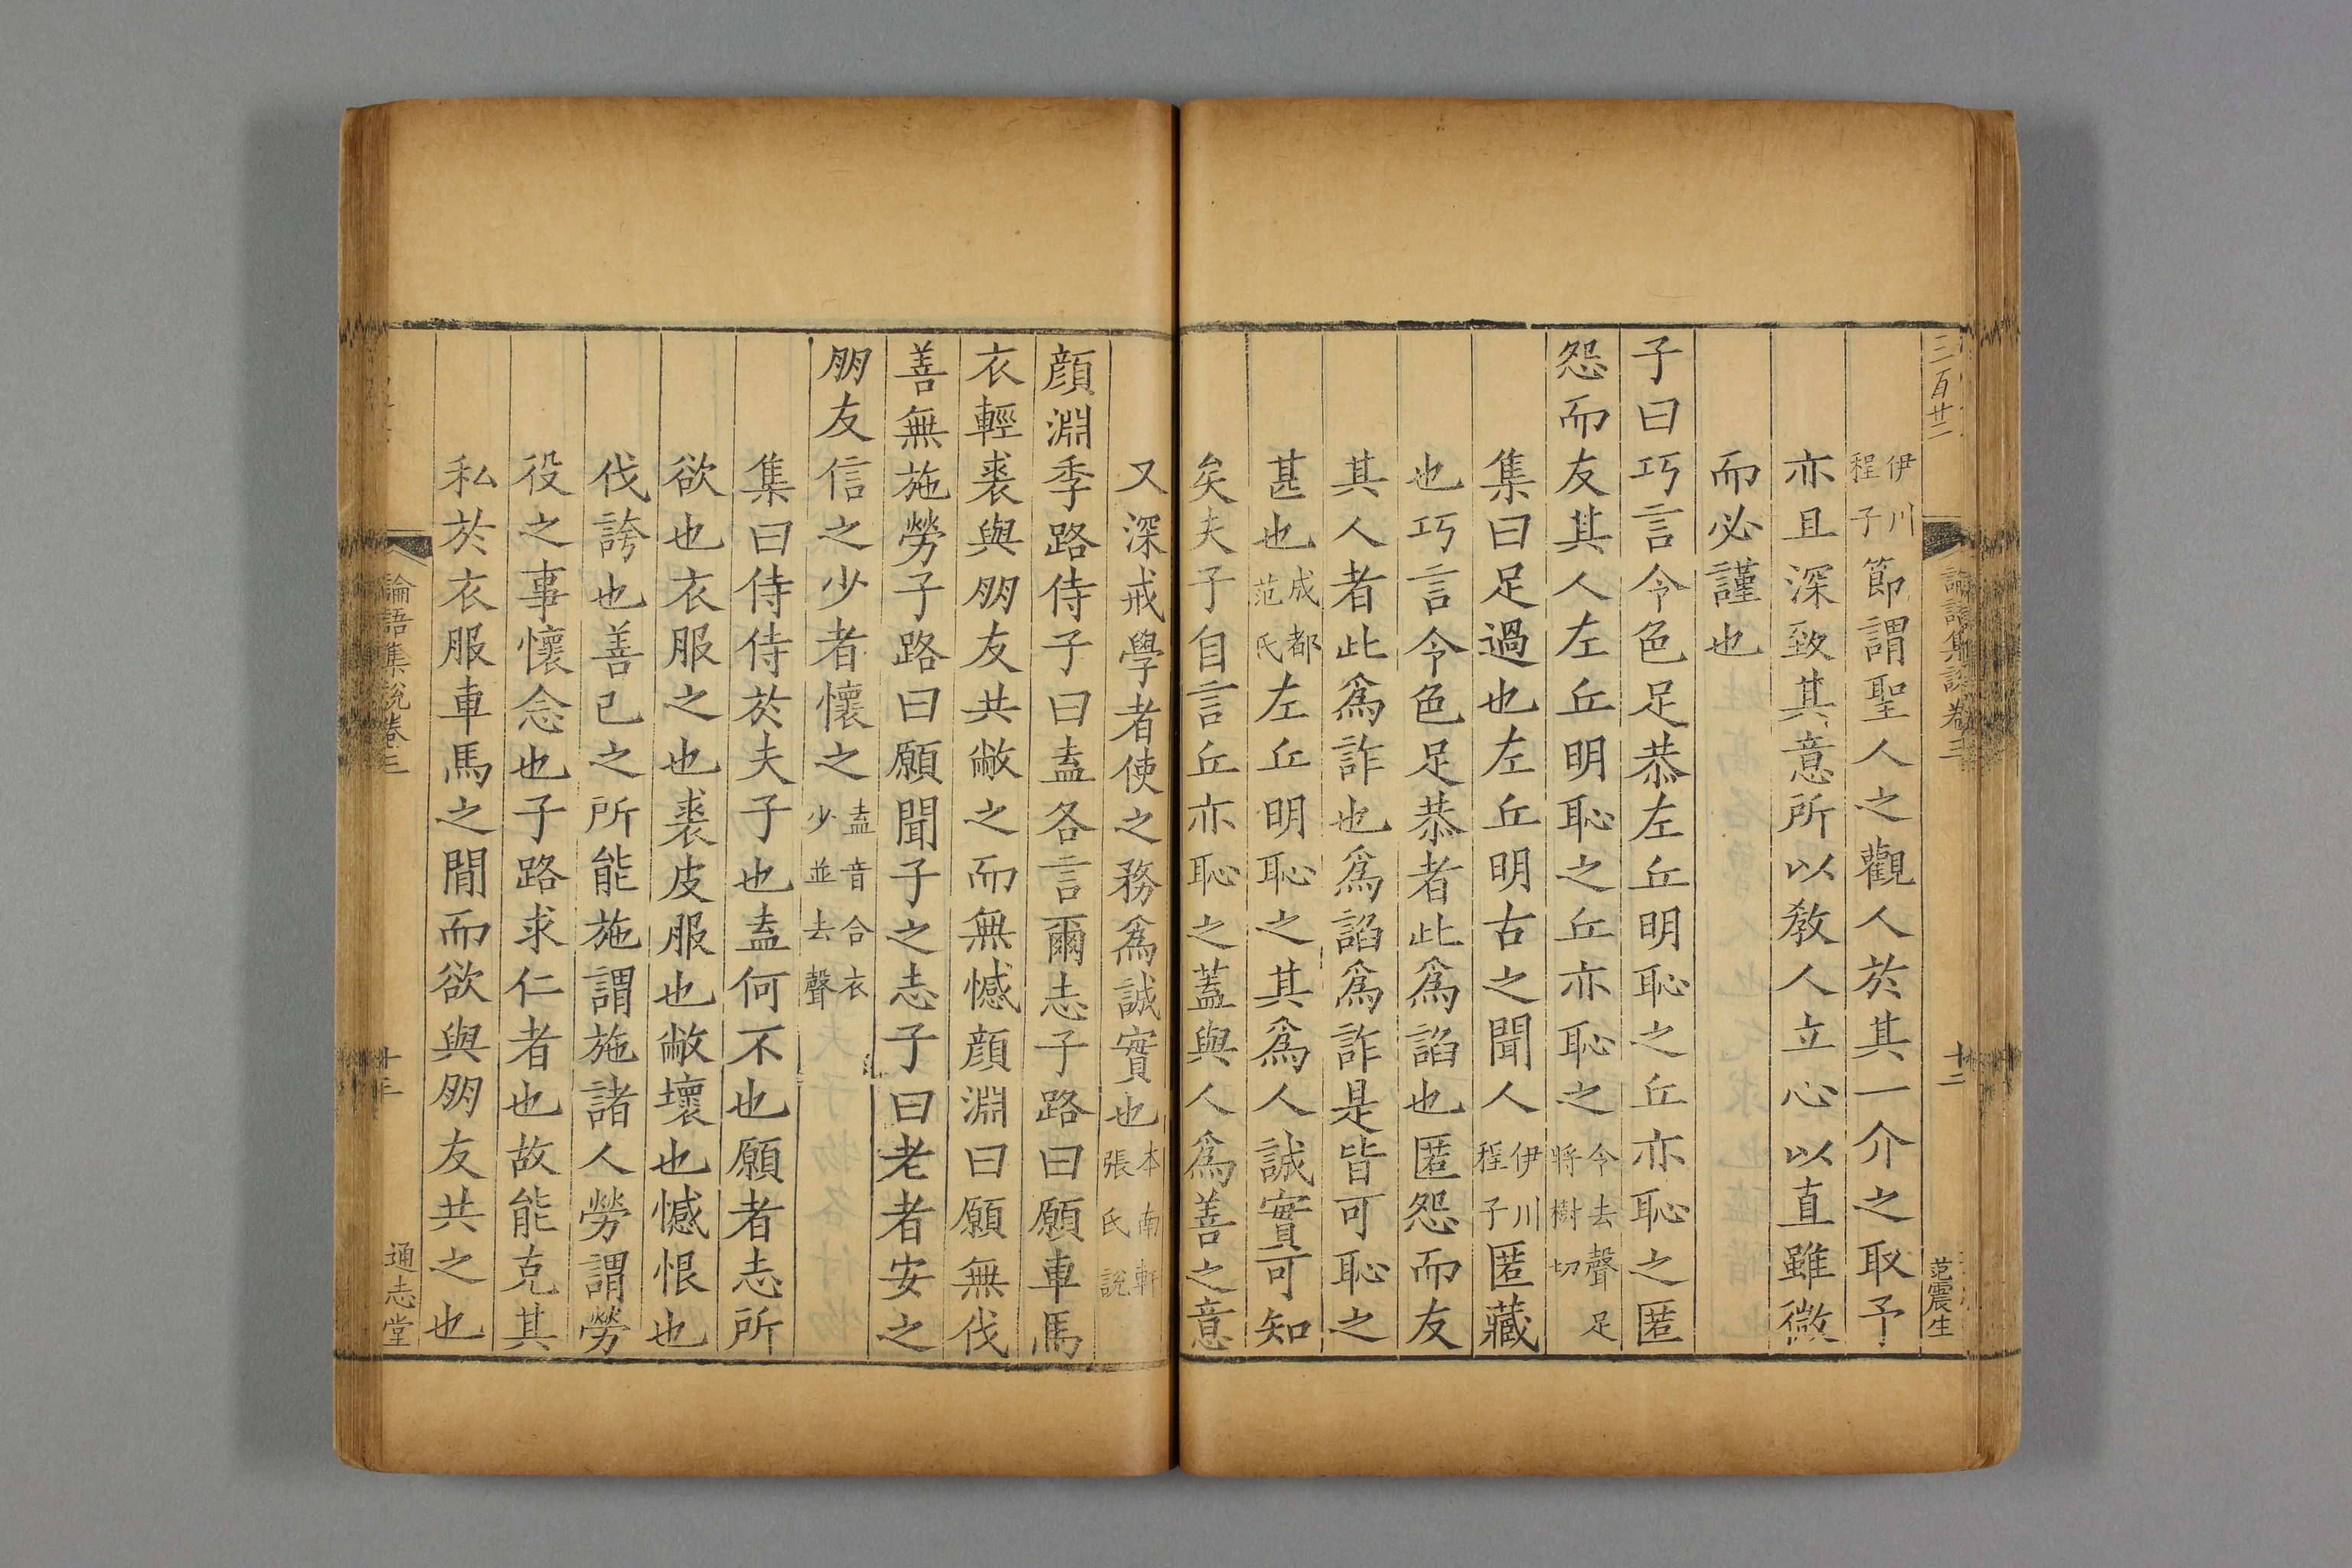 三百廿二
論語集說卷三
十二
范震生
伊川程子節謂聖人之觀人於其一介之取予
亦且深致其意所以敎人立心以直雖微
而必謹也
子曰巧言令色足恭左丘明恥之丘亦恥之匿
怨而友其人左丘明恥之丘亦恥之令去聲足將樹切
集曰足過也左丘明古之聞人伊川程子匿藏
也巧言令色足恭者此爲諂也匿怨而友
其人者此爲詐也爲諂爲詐是皆可恥之
甚也成都范氏左丘明恥之其爲人誠實可知
矣夫子自言丘亦恥之蓋與人爲善之意
又深戒學者使之務爲誠實也本南軒張氏說
顔淵季路侍子曰盍各言爾志子路曰願車馬
衣輕裘與朋友共敝之而無憾顔淵曰願無伐
善無施勞子路曰願聞子之志子曰老者安之
朋友信之少者懷之盍音合衣少並去聲
集曰侍侍於夫子也盍何不也願者志所
欲也衣服之也裘皮服也敝壞也憾恨也
伐誇也善己之所能施謂施諸人勞謂勞
役之事懷念也子路求仁者也故能克其
私於衣服車馬之閒而欲與朋友共之也
論語集說卷三
十三
通志堂